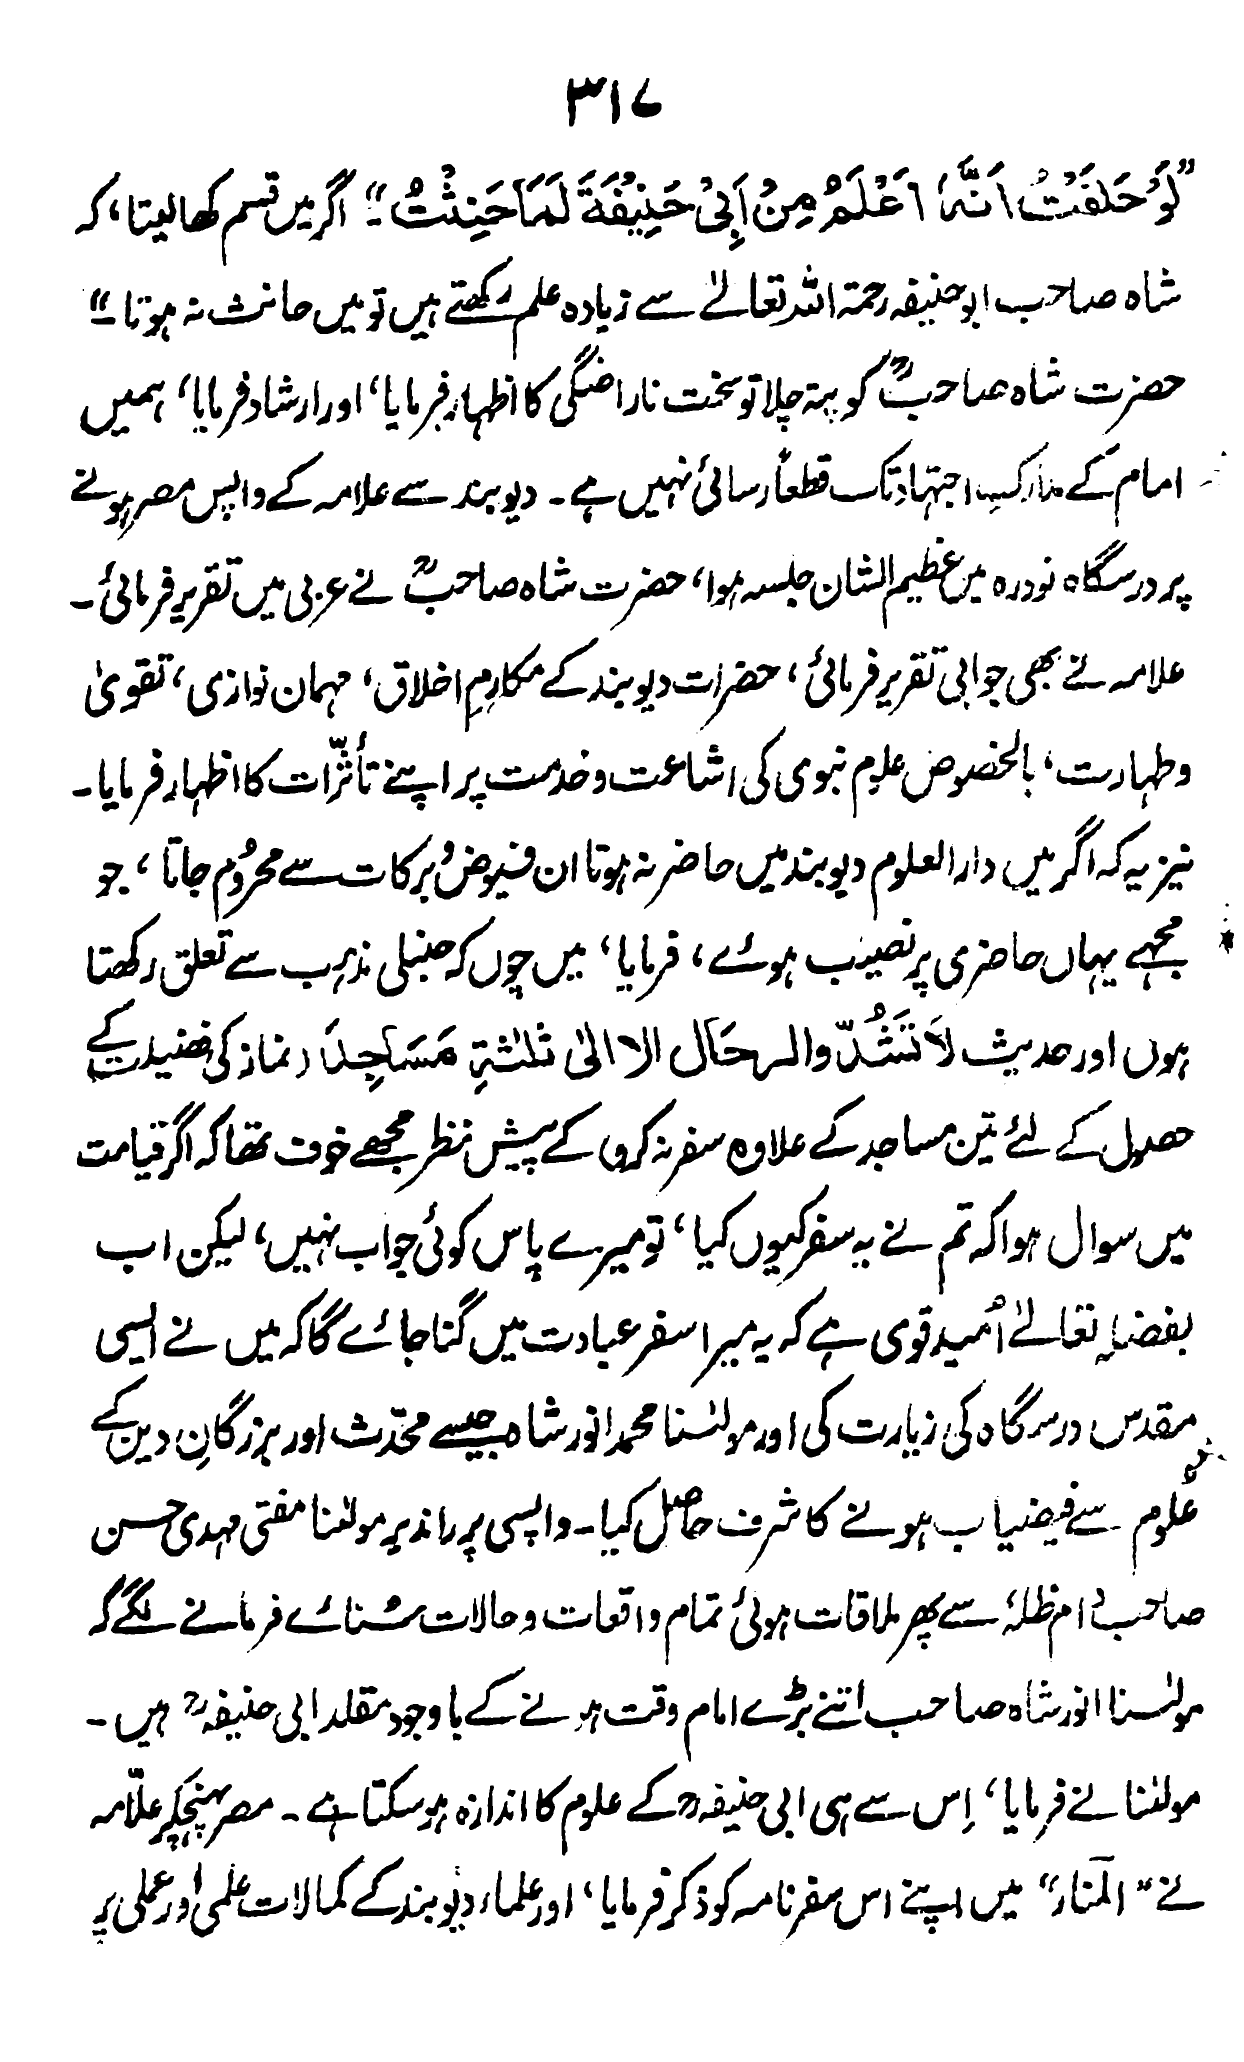 ۳۱۷
”لَوْ حَلَفْتُ اَنَّہٗ اَعْلَمُ مِنْ اَبِیْ حَنِیْفَۃَ لَمَا حَنِثْتُ“ اگر میں قسم کھا لیتا، کہ
شاہ صاحب ابوحنیفہ رحمۃ اللہ تعالےٰ سے زیادہ علم رکھتے ہیں تو میں حانث نہ ہوتا“
حضرت شاہ صاحبؒ کو پتہ چلا تو سخت ناراضگی کا اظہار فرمایا، اور ارشاد فرمایا، ہمیں
امام کے مدارکِ اجتہاد تک قطعاً رسائی نہیں ہے۔ دیوبند سے علامہ کے واپس مصر ہونے
پر درسگاہ نودرہ میں عظیم الشان جلسہ ہوا، حضرت شاہ صاحبؒ نے عربی میں تقریر فرمائی۔
علامہ نے بھی جوابی تقریر فرمائی، حضرات دیوبند کے مکارمِ اخلاق، مہمان نوازی، تقویٰ
وطہارت، بالخصوص علومِ نبوی کی اشاعت وخدمت پر اپنے تأثّرات کا اظہار فرمایا۔
نیز یہ کہ اگر میں دارالعلوم دیوبند میں حاضر نہ ہوتا ان فیوض وبرکات سے محرُوم جاتا، جو
مجھے یہاں حاضری پر نصیب ہوئے، فرمایا، میں چوں کہ حنبلی مذہب سے تعلق رکھتا
ہوں اور حدیث لَا تَشُدُّوا الرِحَال الا الیٰ ثَلٰثۃِ مَسَاجِدَ (نماز کی فضیلت کے
حصول کے لئے تین مساجد کے علاوہ سفر نہ کرو) کے پیش نظر مجھے خوف تھا کہ اگر قیامت
میں سوال ہوا کہ تم نے یہ سفر کیوں کیا، تو میرے پاس کوئی جواب نہیں، لیکن اب
بفضلہٖ تعالےٰ اُمید قوی ہے کہ یہ میرا سفر عبادت میں گنا جائے گا کہ میں نے ایسی
مقدس درسگاہ کی زیارت کی اور مولٰنا محمد انور شاہ جیسے محدّث اور بزرگانِ دین کے
علوم سے فیضیاب ہونے کا شرف حاصل کیا۔ واپسی پر راندیر مولٰنا مفتی مہدی حسن
صاحب دام ظلہٗ سے پھر ملاقات ہوئی تمام واقعات وحالات سُنائے فرمانے لگے کہ
مولٰنا انور شاہ صاحب اتنے بڑے امام وقت ہونے کے باوجود مقلد ابی حنیفہؒ ہیں۔
مولٰنا نے فرمایا، اِس سے ہی ابی حنیفہؒ کے علوم کا اندازہ ہوسکتا ہے۔ مصر پہنچکر علّامہ
نے ”المنار“ میں اپنے اس سفرنامہ کو ذکر فرمایا، اور علماء دیوبند کے کمالات علمی اور عملی پر